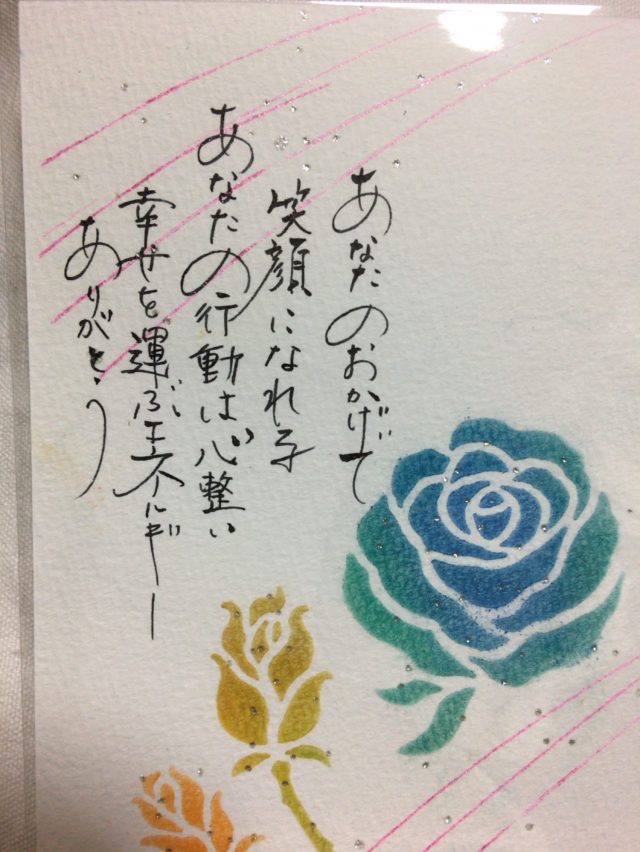 あなたのおかげで
笑顔になれる
あなたの行動は心整い
幸せを運ぶエネルギー
ありがとう